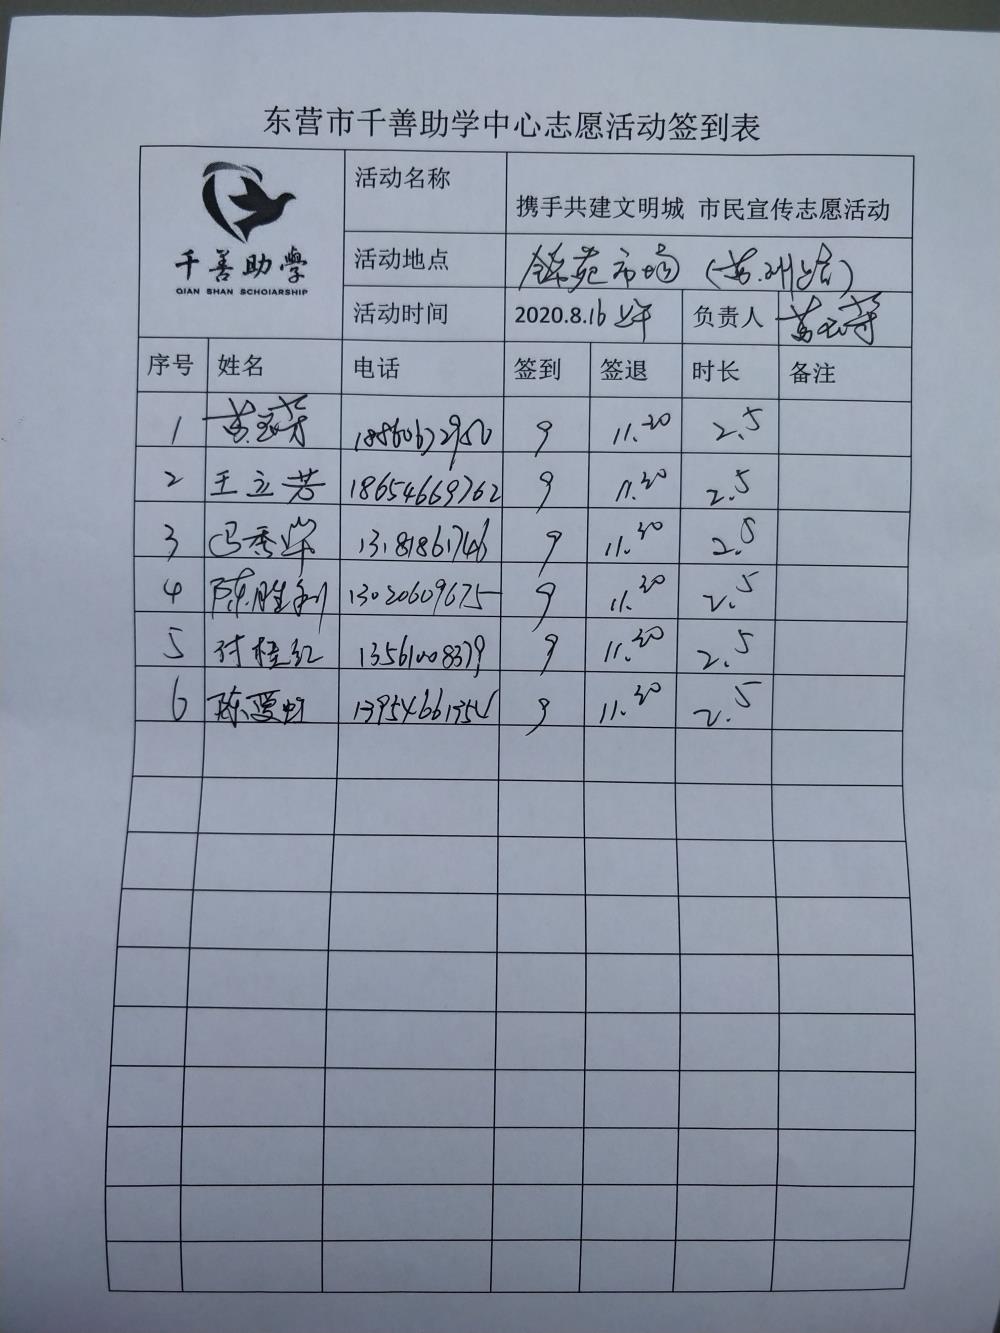 东营市千善助学中心志愿活动签到表
千善助学
QIAN SHAN SCHOIARSHIP
活动名称 携手共建文明城 市民宣传志愿活动
活动地点 市场
活动时间 2020.8.16 上午 负责人
序号 姓名 电话 签到 签退 时长 备注
1 9 11.30 2.5
2 王立芳 18654669762 9 11.30 2.5
3 冯秀华 13181861746 9 11.30 2.5
4 陈胜利 13020609675 9 11.30 2.5
5 付桂红 13561008379 9 11.30 2.5
6 陈爱 9 11.30 2.5